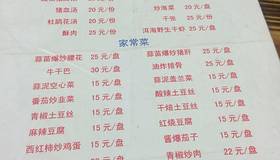 猪血汤 20元/份
炒泡菜 20元/盘
杜鹃花汤 20元/份
干张 25元/盘
酥肉 25元/份
洱海野生干虾 25元/盘
家常菜
蒜苗爆炒腰花 25元/盘
蒜苗爆炒猪肝 25元/盘
牛干巴 30元/盘
油炸排骨 30元/盘
蒜泥空心菜 15元/盘
蒜泥盖兰菜 15元/盘
番茄炒韭菜 15元/盘
酸辣土豆丝 15元/盘
青椒土豆丝 15元/盘
干焙土豆丝 15元/盘
麻辣豆腐 15元/盘
红烧豆腐 15元/盘
西红柿炒鸡蛋 15元/盘
酱爆茄子 15元/盘
青椒炒肉 22元/盘